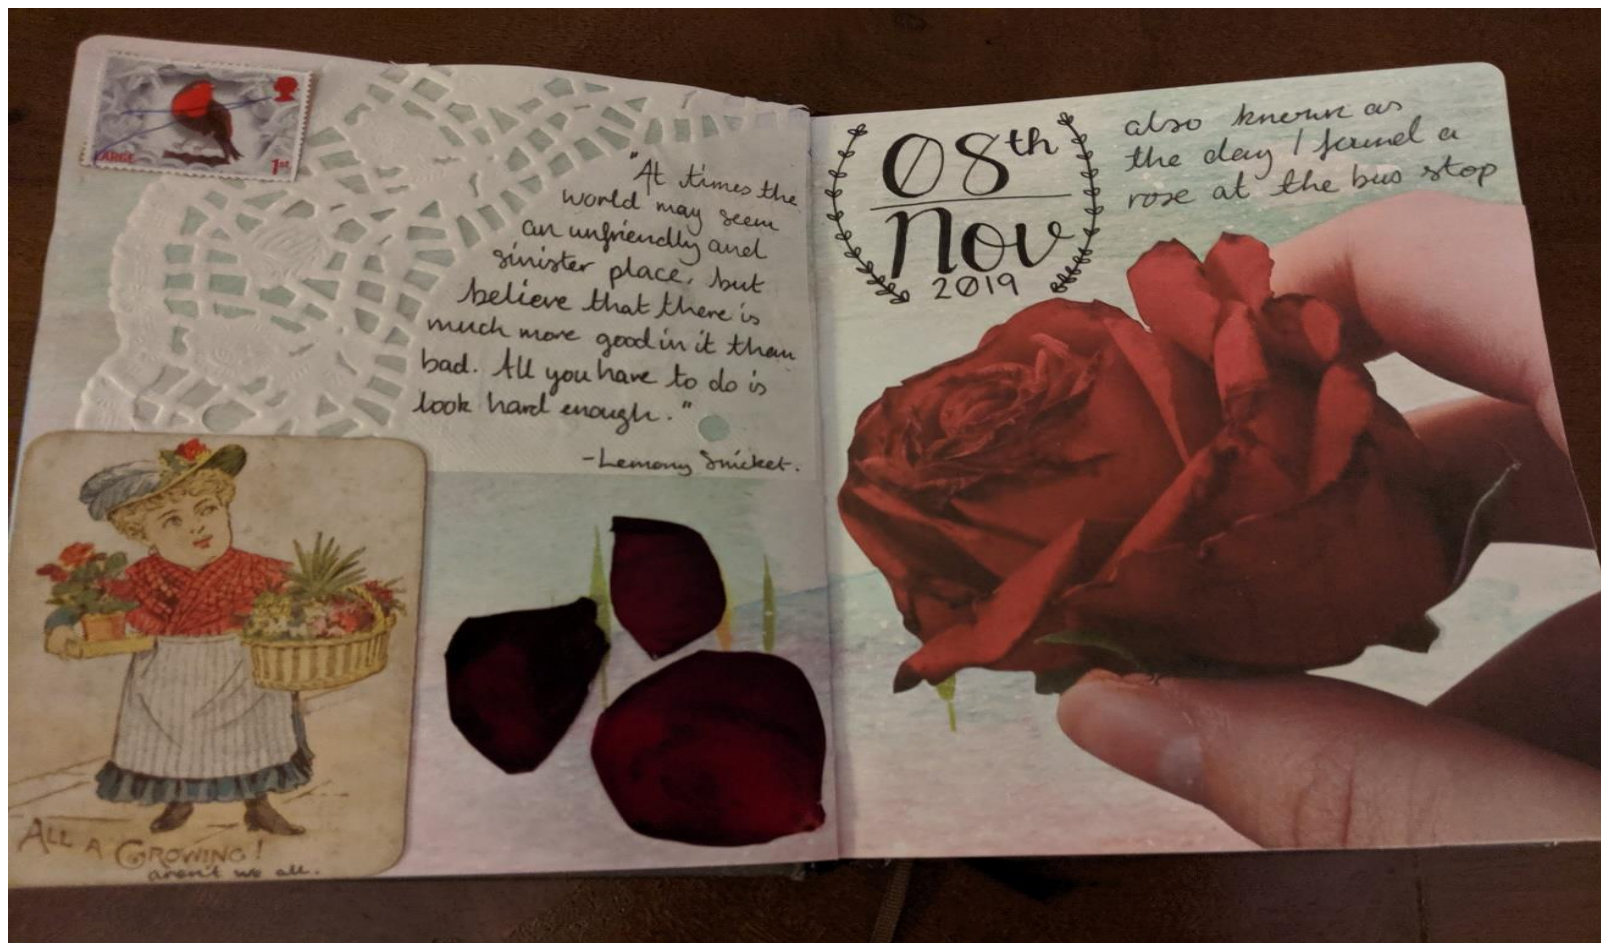 LARGE
1st
"At times the
world may seem
an unfriendly and
sinister place, but
believe that there is
much more good in it than
bad. All you have to do is
look hard enough."
-Lemony Snicket.
ALL A GROWING!
aren't we all.
08th
Nov
2019
also known as
the day I found a
rose at the bus stop